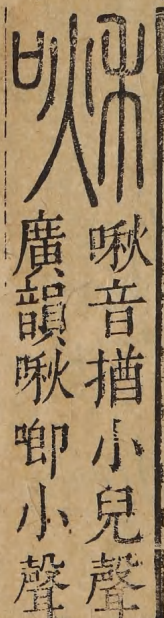 啾
啾音揂小兒聲
廣韻啾唧小聲